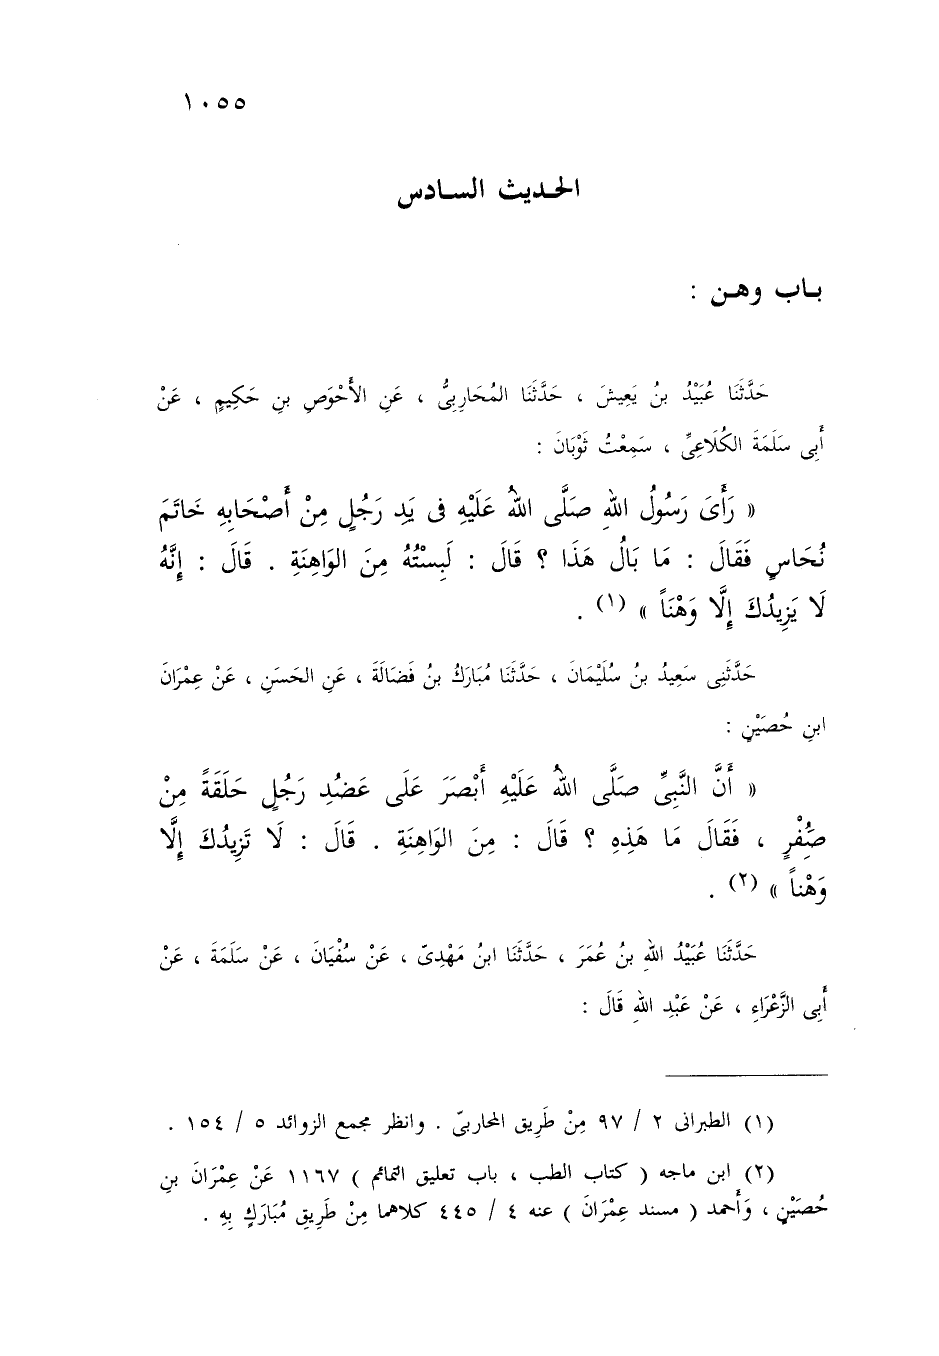 ١٠٥٥
الحديث السادس
باب وهن :
حَدَّثَنَا عُبَيْدُ بنُ يَعِيشَ ، حَدَّثَنَا المُحَارِبِىُّ ، عَنِ الأَحْوَصِ بنِ حَكِيمٍ ، عَنْ
أَبِى سَلَمَةَ الكُلَاعِىِّ ، سَمِعْتُ ثَوْبَانَ :
« رَأَىَ رَسُولُ اللهِ صَلَّى اللهُ عَلَيْهِ فى يَدِ رَجُلٍ مِنْ أَصْحَابِهِ خَاتَمَ
نُحَاسٍ فَقَالَ : مَا بَالُ هَذَا ؟ قَالَ : لَبِسْتُهُ مِنَ الوَاهِنَةِ . قَالَ : إِنَّهُ
لَا يَزِيدُكَ إِلَّا وَهْنَاً » (١) .
حَدَّثَنِى سَعِيدُ بنُ سُلَيْمَانَ ، حَدَّثَنَا مُبَارَكُ بنُ فَضَالَةَ ، عَنِ الحَسَنِ ، عَنْ عِمْرَانَ
ابنِ حُصَيْنٍ :
« أَنَّ النَّبِىِّ صَلَّى اللهُ عَلَيْهِ أَبْصَرَ عَلَى عَضُدِ رَجُلٍ حَلَقَةً مِنْ
صُِفْرٍ ، فَقَالَ مَا هَذِهِ ؟ قَالَ : مِنَ الوَاهِنَةِ . قَالَ : لَا تَزِيدُكَ إِلَّا
وَهْناً » (٢) .
حَدَّثَنَا عُبَيْدُ اللهِ بنُ عُمَرَ ، حَدَّثَنَا ابنُ مَهْدِىّ ، عَنْ سُفْيَانَ ، عَنْ سَلَمَةَ ، عَنْ
أَبِى الزَّعْرَاءِ ، عَنْ عَبْدِ اللهِ قَالَ :
(١) الطبرانى ٢ / ٩٧ مِنْ طَرِيق المحاربىّ . وانظر مجمع الزوائد ٥ / ١٥٤ .
(٢) ابن ماجه ( كتاب الطب ، باب تعليق التمائم ) ١١٦٧ عَنْ عِمْرَانَ بنِ
حُصَيْنٍ ، وَأَحمد ( مسند عِمْرَانَ ) عنه ٤ / ٤٤٥ كلاهما مِنْ طَرِيقِ مُبَارَكٍ بِهِ .